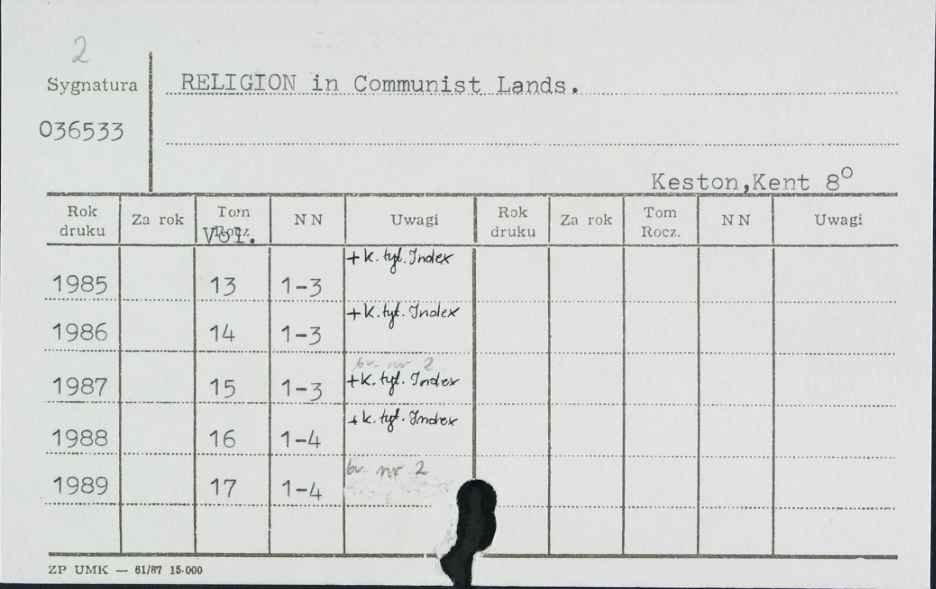 2
Sygnatura RELIGION in Communist Lands.
036533
Keston,Kent 8°
Rok druku Za rok Tom Rocz. Vol. NN Uwagi Rok druku Za rok Tom Rocz. NN Uwagi
+k. tyt. Index
1985 13 1-3
+k. tyt. Index
1986 14 1-3
br. nr 2
1987 15 1-3 +k. tyt. Index
+k. tyt. Index
1988 16 1-4
br. nr 2
1989 17 1-4
ZP UMK — 61/87 15·000